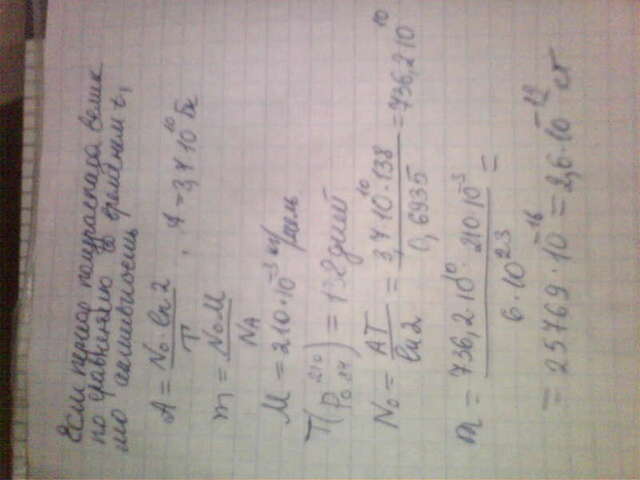 Если период полураспада велик
по сравнению со временем t,
то активность
A = N₀ ln 2 / T , A = 3,7 10¹⁰ Бк
m = N₀M / NA
M = 210·10⁻³ кг/моль
T(Po 210 84) = 138 дней
N₀ = AT / ln 2 = 3,7 10¹⁰·138 / 0,6935 = 736,2 10¹⁰
m = 736,2·10¹⁰ · 210 10⁻³ / 6·10²³ =
= 25769·10⁻¹⁶ = 2,6·10⁻¹² кг